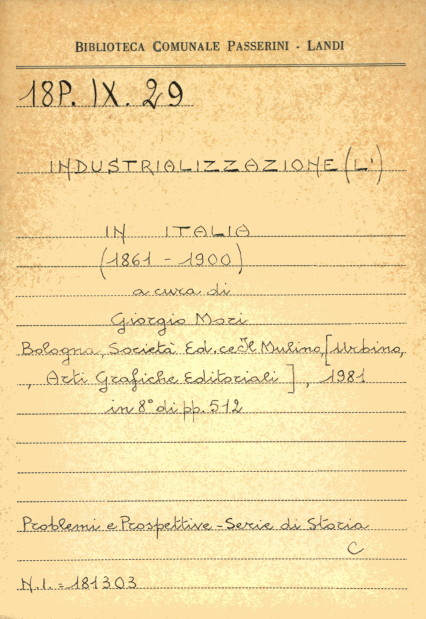 BIBLIOTECA COMUNALE PASSERINI - LANDI
18P. IX. 29
INDUSTRIALIZZAZIONE (L')
IN ITALIA
(1861 - 1900)
a cura di
Giorgio Mori
Bologna, Società Ed.ce Il Mulino, [Urbino,
, Arti Grafiche Editoriali], 1981
in 8° di pp. 512
Problemi e Prospettive - Serie di Storia
C
N.I. = 181303